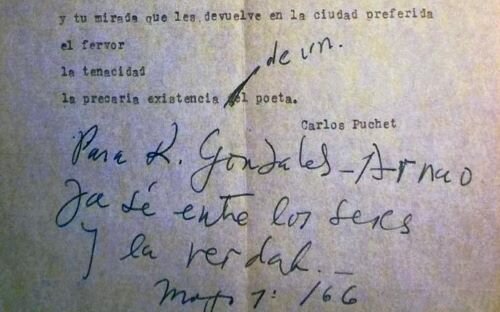 y tu mirada que les devuelve en la ciudad preferida
el fervor
la tenacidad
de un.
la precaria existencia del poeta.
Carlos Puchet
Para R. Gonzales-Arnao
Ya sé entre los seres
y la verdad._
1: /66